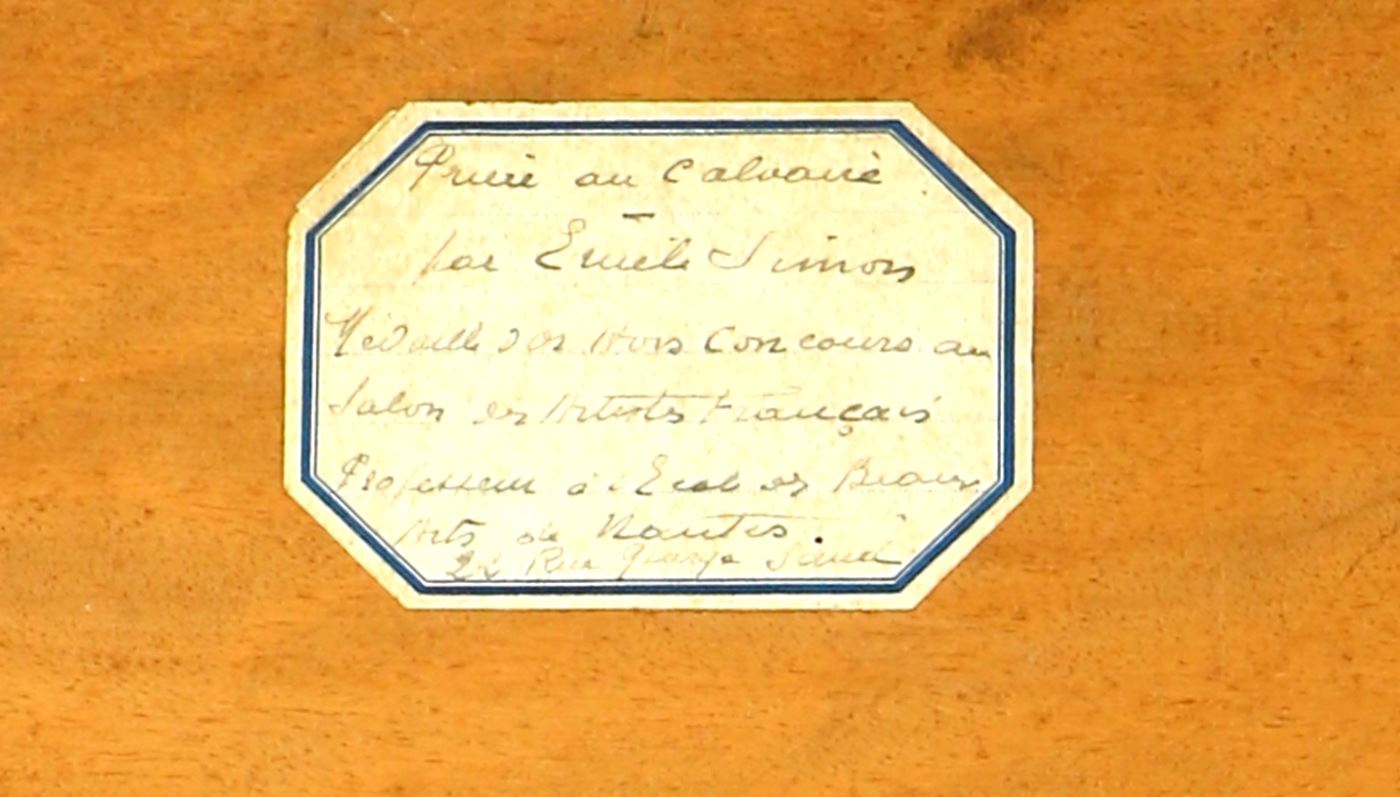 Prière au Calvaire
par Emile Simon
Médaille d'or Hors Concours au
Salon des Artistes Français
Professeur à l'Ecole des Beaux
Arts de Nantes.
22 Rue George Sand